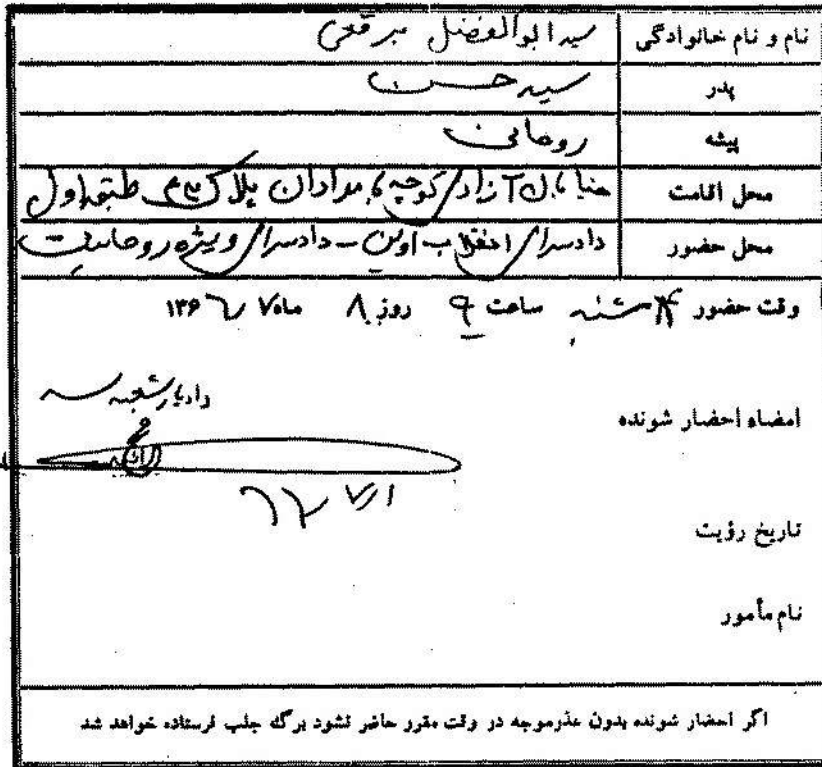 نام و نام خانوادگی سید ابوالفضل برقعی
پدر سید حسن
پیشه روحانی
محل اقامت خیابان آزادی کوچه مرادان پلاک طبقه اول
محل حضور دادسرای انقلاب اوین - دادسرای ویژه روحانیت
وقت حضور ۴ شنبه ساعت ۹ روز ۸ ماه ۷ ۱۳۶۶
دادیار شعبه سه
امضاء احضار شونده
تاریخ رؤیت
نام مأمور
اگر احضار شونده بدون عذرموجه در وقت مقرر حاضر نشود برگ جلب فرستاده خواهد شد